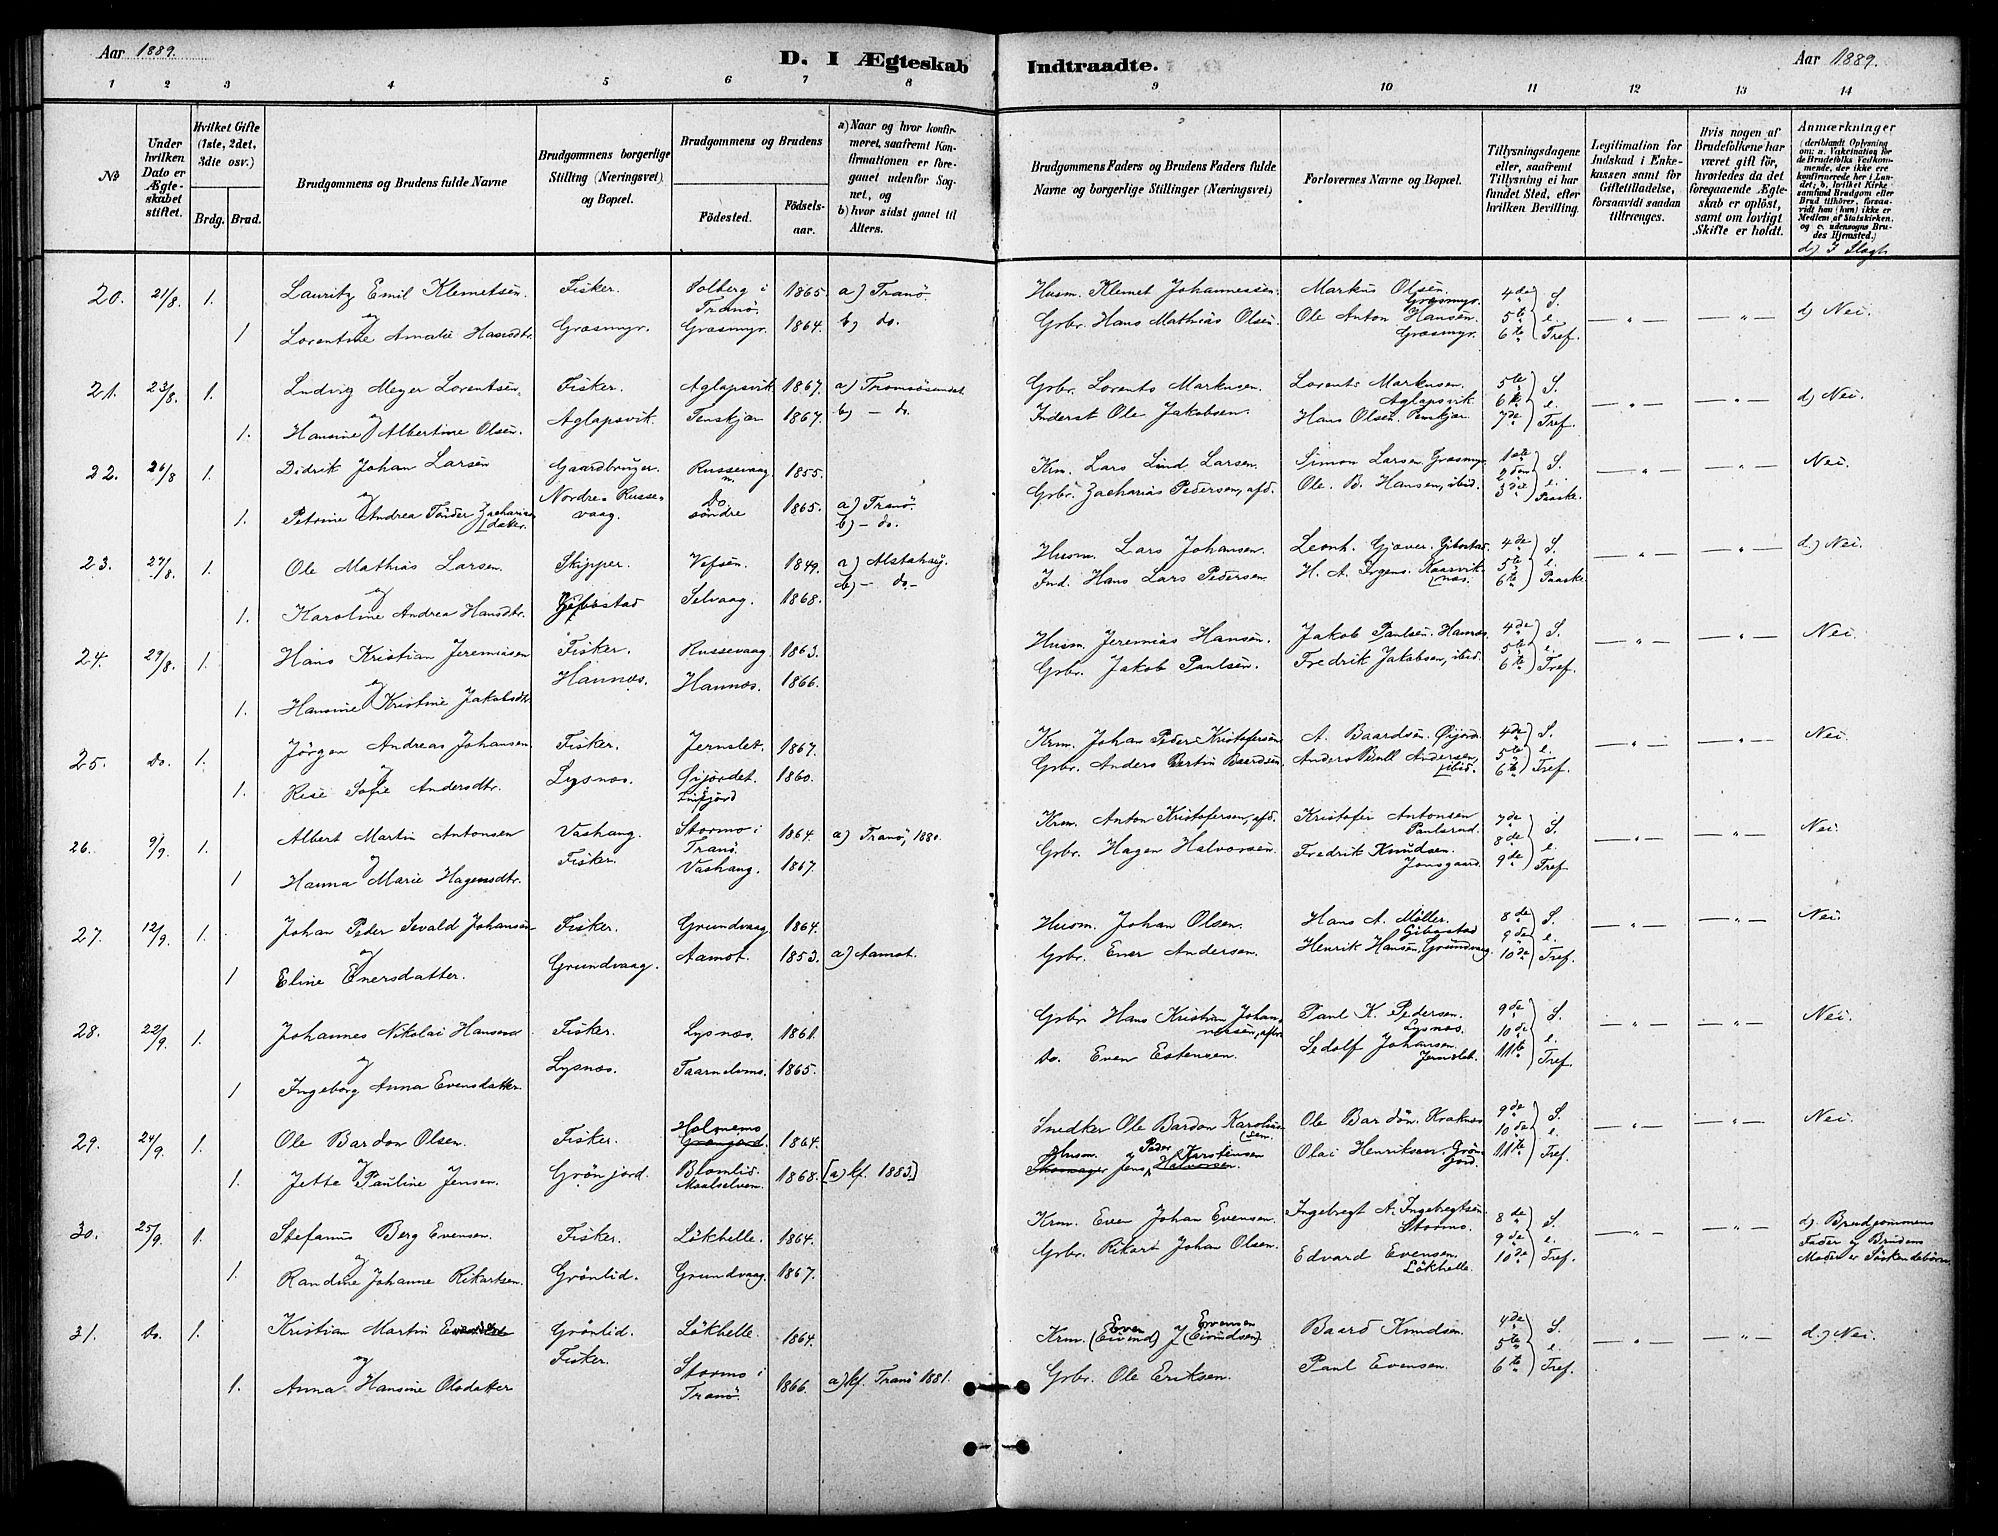 Aar 1889.
D. I Ægteskab Indtraadte.
Aar 1889.
1 2 3 4 5 6 7 8 9 10 11 12 13 14
No
Under hvilken Dato er Ægteskabet stiftet.
Hvilket Gifte (1ste, 2det, 3dte osv.)
Brdg. Brud.
Brudgommens og Brudens fulde Navne
Brudgommens borgerlige Stilling (Næringsvei) og Bopæl.
Brudgommens og Brudens
Födested.
Födselsaar.
a) Naar og hvor konfirmeret, saafremt Konfirmationen er foregaaet udenfor Sognet, og
b) hvor sidst gaaet til Alters.
Brudgommens Faders og Brudens Faders fulde Navne og borgerlige Stillinger (Næringsvei)
Forlovernes Navne og Bopæl.
Tillysningsdagene eller, saafremt Tillysning ei har fundet Sted, efter hvilken Bevilling.
Legitimation for Indskud i Enkekassen samt for Giftetilladelse, forsaavidt saadan tiltrænges.
Hvis nogen af Brudefolkene har været gift för, hvorledes da det foregaaende Ægteskab er oplöst, samt om lovligt Skifte er holdt.
Anmærkninger
(deriblandt Oplysning om: a. Vakcination for de Brudefolks Vedkommende, der ikke ere konfirmerede her i Landet; b. hvilket Kirkesamfund Brudgom eller Brud tilhörer, forsaavidt han (hun) ikke er Medlem af Statskirken, og c. udensogns Brudes Hjemsted.)
d) I Slagt.
20. 21/8. 1. Lauritz Emil Klemetsen Fisker. Solberg i Tranö. 1865. a) Tranö. Husm. Klemet Johannessen. Markus Olsen Græsmyr. 4de S. d) Nei.
og
1 Lorentine Amalie Hansdtr. Græsmyr. Græsmyr. 1864. b) do. Grbr. Hans Mathias Olsen. Ole Anton Hansen. Græsmyr. 5te 6te e. Tref.
21. 23/8. 1. Ludvig Meyer Lorentsen Fisker. Aglapsvik 1867. a) Tromsösundet Grbr. Lorents Markusen. Lorents Markusen. Aglapsvik. 5te 6te S. d) Nei.
og
1. Hansine Albertine Olsen. Aglapsvik. Tenskjær 1867. b) - do. Inderst Ole Jakobsen. Hans Olsen. Tenskjær 7de e. Tref.
22. 26/8 1. Didrik Johan Larsen Gaardbruger. Russevaag n. 1855. Krm. Lars Lind Larsen. Simon Larsen. Græsmyr. 1ste 2den S. Nei.
og
1. Petrine Andrea Tönder Zachariasdatter. Nordre Russevaag. Do. söndre 1865. a) Tranö. b) - do. Grbr. Zacharias Pedersen, afd. Ole B. Hansen, ibid. 3die e. Paaske.
23. 27/8. 1. Ole Mathias Larsen. Skipper. Vefsen. 1849. a) Alstahaug. Husm. Lars Johansen. Leonh. Gjæver. Gibostad. 4de S. d.) Nei.
og
1. Karoline Andrea Hansdtr. Gibostad Selvaag. 1868. b) - do - Ind. Hans Lars Pedersen. H. A. Irgens. Kaarviknes. 5te 6te e. Paaske.
24. 29/8. 1. Hans Kristian Jeremiasen Fisker. Russevaag 1863. Husm. Jeremias Hansen. Jakob Paulsen. Hannæs. 4de S. Nei.
og
1. Hansine Kristine Jakobsdtr. Hannæs. Hannæs. 1866. Grbr. Jakob Paulsen. Fredrik Jakobsen, ibid. 5te 6te e. Tref.
25. Do. 1. Jörgen Andreas Johansen Fisker. Jernslet. 1867. Krm. Johan Peder Kristofersen A. Baardsen. Øijord. 4de S. Nei.
og
1. Sofie Andersdtr. Lysnæs. Øijordet 1860. Grbr. Anders Bertin Baardsen. Anders Andersen ibid. 5te 6te e. Tref.
26. 9/9. 1. Albert Martin Antonsen Vashaug. Stormo i Tranö. 1864. a) Tranö, 1880. Krm. Anton Kristofersen, afd. Kristofer Antonsen 7de S. Nei.
og
1 Hanna Marie Hagensdtr. Fisker. Vashaug. 1867. Grbr. Hagen Halvorsen. Fredrik Knudsen. Jonsgaard. 8de 9de e. Tref.
27. 12/9. 1. Johan Peder Sevald Johansen Fisker. Grundvaag 1864. Husm. Johan Olsen. Hans A. Möller. Gibostad 8de S. Nei.
og
1 Eline Enersdatter. Grundvaag. Aamot. 1853. a) Aamot. Grbr. Ener Andersen. Henrik Hansen, Grundvaag 9de 10de e. Tref.
28. 22/9. 1. Johannes Nikolai Hansen Fisker. Lysnæs. 1861. Grbr. Hans Kristian Johannessen, Paul K. Pedersen. Lysnæs. 9de S. Nei.
og
1 Ingeborg Anna Evensdatter. Lysnæs. Taarnelvmo. 1865. Do. Even Estensen. Sedolf Johansen. Jernslet. 10de 11te e. Tref.
29. 24/9. 1. Ole Bardon Olsen. Fisker. Holmemo Grönjord. 1864. Snedker Ole Bardon Karoliussen. Ole Bardon, Kraknes 9de S. Nei.
og
1. Jette Pauline Jensen. Grönjord. Blomlid. Maalselven. 1868. [a) kf. 1883] Husm. Skomager Jens Peder Kerstensen Halvorsen. Olai Henriksen. Grönjord. 10de 11te e. Tref.
30. 25/9. 1. Stefanus Berg Evensen. Fisker. Lökhelle. 1864. Krm. Even Johan Evensen. Ingebregt A. Ingebregtsen Stormo. 8de S. d) Brudgommens Fader og Brudens Moder er Söskendebörn.
og
1. Randine Johanne Rikartsen. Grönlid. Grundvaag 1867. Grbr. Rikart Johan Olsen. Edvard Evensen. Lökhelle. 9de 10de e. Tref.
31. Do. 1. Kristian Martin Grönlid. Lökhelle 1864. Krm. Even (Eivind) J. Evensen (Eivindsen). Baard Knudsen. 4de S. d.) Nei.
og
1. Anna Hansine Olsdatter Fisker. Stormo i Tranö. 1866. a) kf. Tranö 1881. Grbr. Ole Eriksen. Paul Evensen. 5te 6te e. Tref.